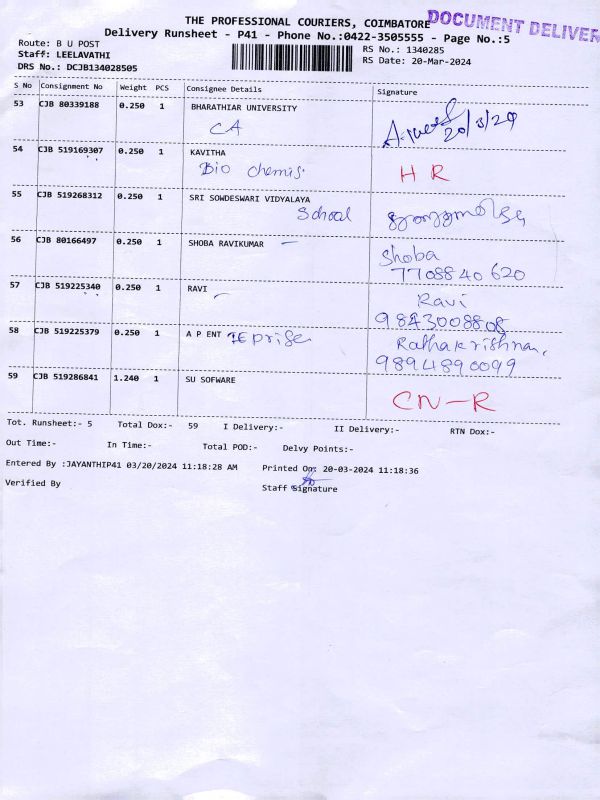 THE PROFESSIONAL COURIERS, COIMBATORE
DOCUMENT DELIVER
Delivery Runsheet - P41 - Phone No.:0422-3505555 - Page No.:5
Route: B U POST
RS No.: 1340285
Staff: LEELAVATHI
RS Date: 20-Mar-2024
DRS No.: DCJB134028505
S No Consignment No Weight PCS Consignee Details Signature
53 CJB 80339188 0.250 1 BHARATHIAR UNIVERSITY
CA
20/3/24
54 CJB 519169307 0.250 1 KAVITHA
Bio chemis.
H R
55 CJB 519268312 0.250 1 SRI SOWDESWARI VIDYALAYA
School
56 CJB 80166497 0.250 1 SHOBA RAVIKUMAR
Shoba
7708840620
57 CJB 519225340 0.250 1 RAVI
Ravi
9843008808
58 CJB 519225379 0.250 1 A P ENT TEprise
Rathakrishnan,
9894890099
59 CJB 519286841 1.240 1 SU SOFWARE
CN-R
Tot. Runsheet:- 5 Total Dox:- 59 I Delivery:- II Delivery:- RTN Dox:-
Out Time:- In Time:- Total POD:- Delvy Points:-
Entered By :JAYANTHIP41 03/20/2024 11:18:28 AM Printed On: 20-03-2024 11:18:36
Verified By Staff Signature